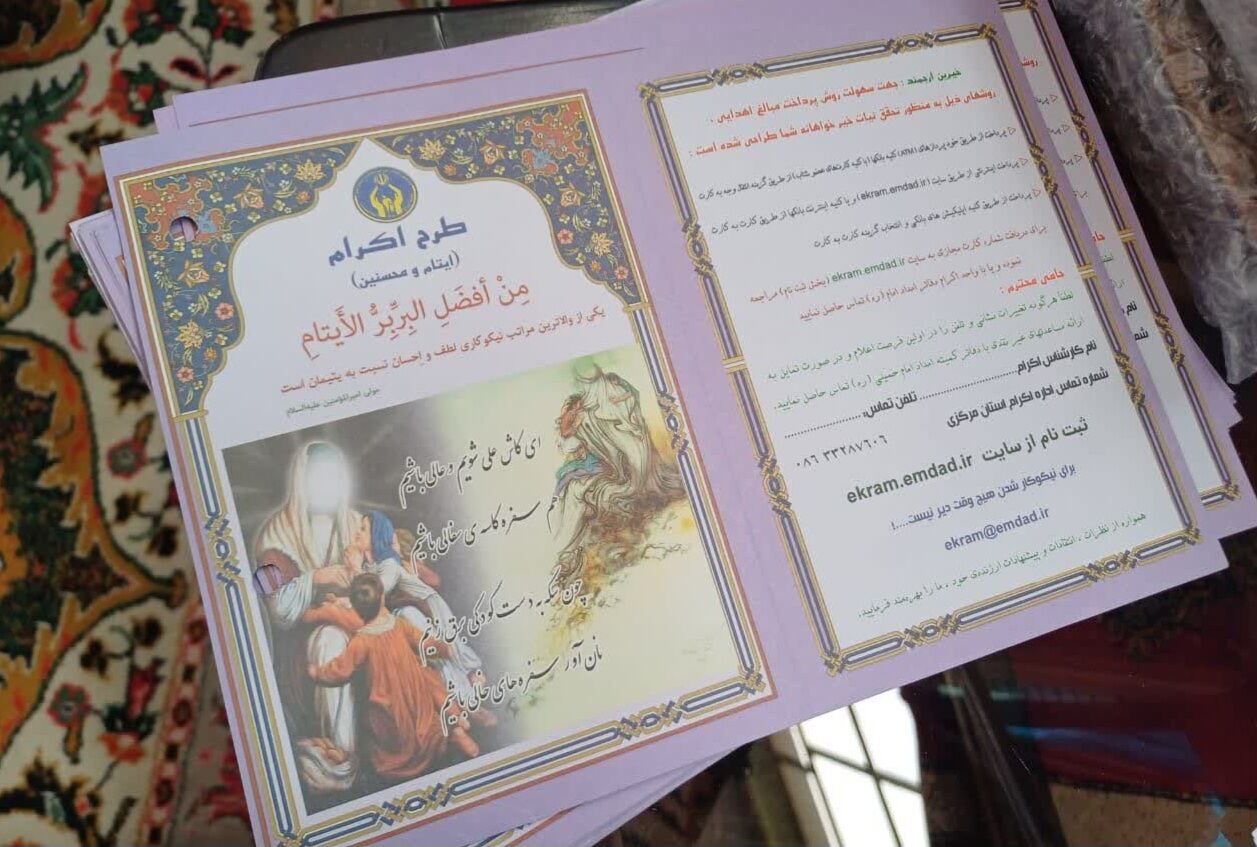 طرح اکرام
(ایتام و محسنین)
مِنْ أفضَلِ البِرِّبِرُّ الأَیتامِ
یکی از والاترین مراتب نیکوکاری لطف و احسان نسبت به یتیمان است
مولی امیرالمؤمنین علیه‌السلام
ای کاش علی شویم و عالی باشیم
هم سفره کاسه ی سفالی باشیم
چون سکه به دست کودکی برق زنیم
نان آور سفره های خالی باشیم
خیرین ارجمند : جهت سهولت روش پرداخت مبالغ اهدایی ،
روشهای ذیل به منظور تحقق نیات خیر خواهانه شما طراحی شده است :
پرداخت از طریق خود پردازهای (ATM) کلیه بانکها (با کلیه کارتهای عضو شتاب) از طریق گزینه انتقال وجه به کارت
پرداخت اینترنتی از طریق سایت (ekram.emdad.ir) و یا کلیه اینترنت بانکها از طریق کارت به کارت
پرداخت از طریق کلیه اپلیکیشن های بانکی و انتخاب گزینه کارت به کارت
برای دریافت شماره کارت مجازی به سایت ekram.emdad.ir (بخش ثبت نام) مراجعه
نموده و یا با واحد اکرام دفاتر امداد امام (ره) تماس حاصل نمایید
حامی محترم :
لطفا هرگونه تغییرات نشانی و تلفن را در اولین فرصت اعلام و در صورت تمایل به
ارائه مساعدتهای غیر نقدی با دفاتر کمیته امداد امام خمینی (ره) تماس حاصل نمایید.
نام کارشناس اکرام........................ تلفن تماس:........................
شماره تماس اداره اکرام استان مرکزی
۰۸۶ ۳۳۲۸۷۶۰۶
ثبت نام از سایت ekram.emdad.ir
برای نیکوکار شدن هیچ وقت دیر نیست....!
ekram@emdad.ir
همواره از نظرات ، انتقادات و پیشنهادات ارزنده‌ی خود ، ما را بهره‌مند فرمایید.